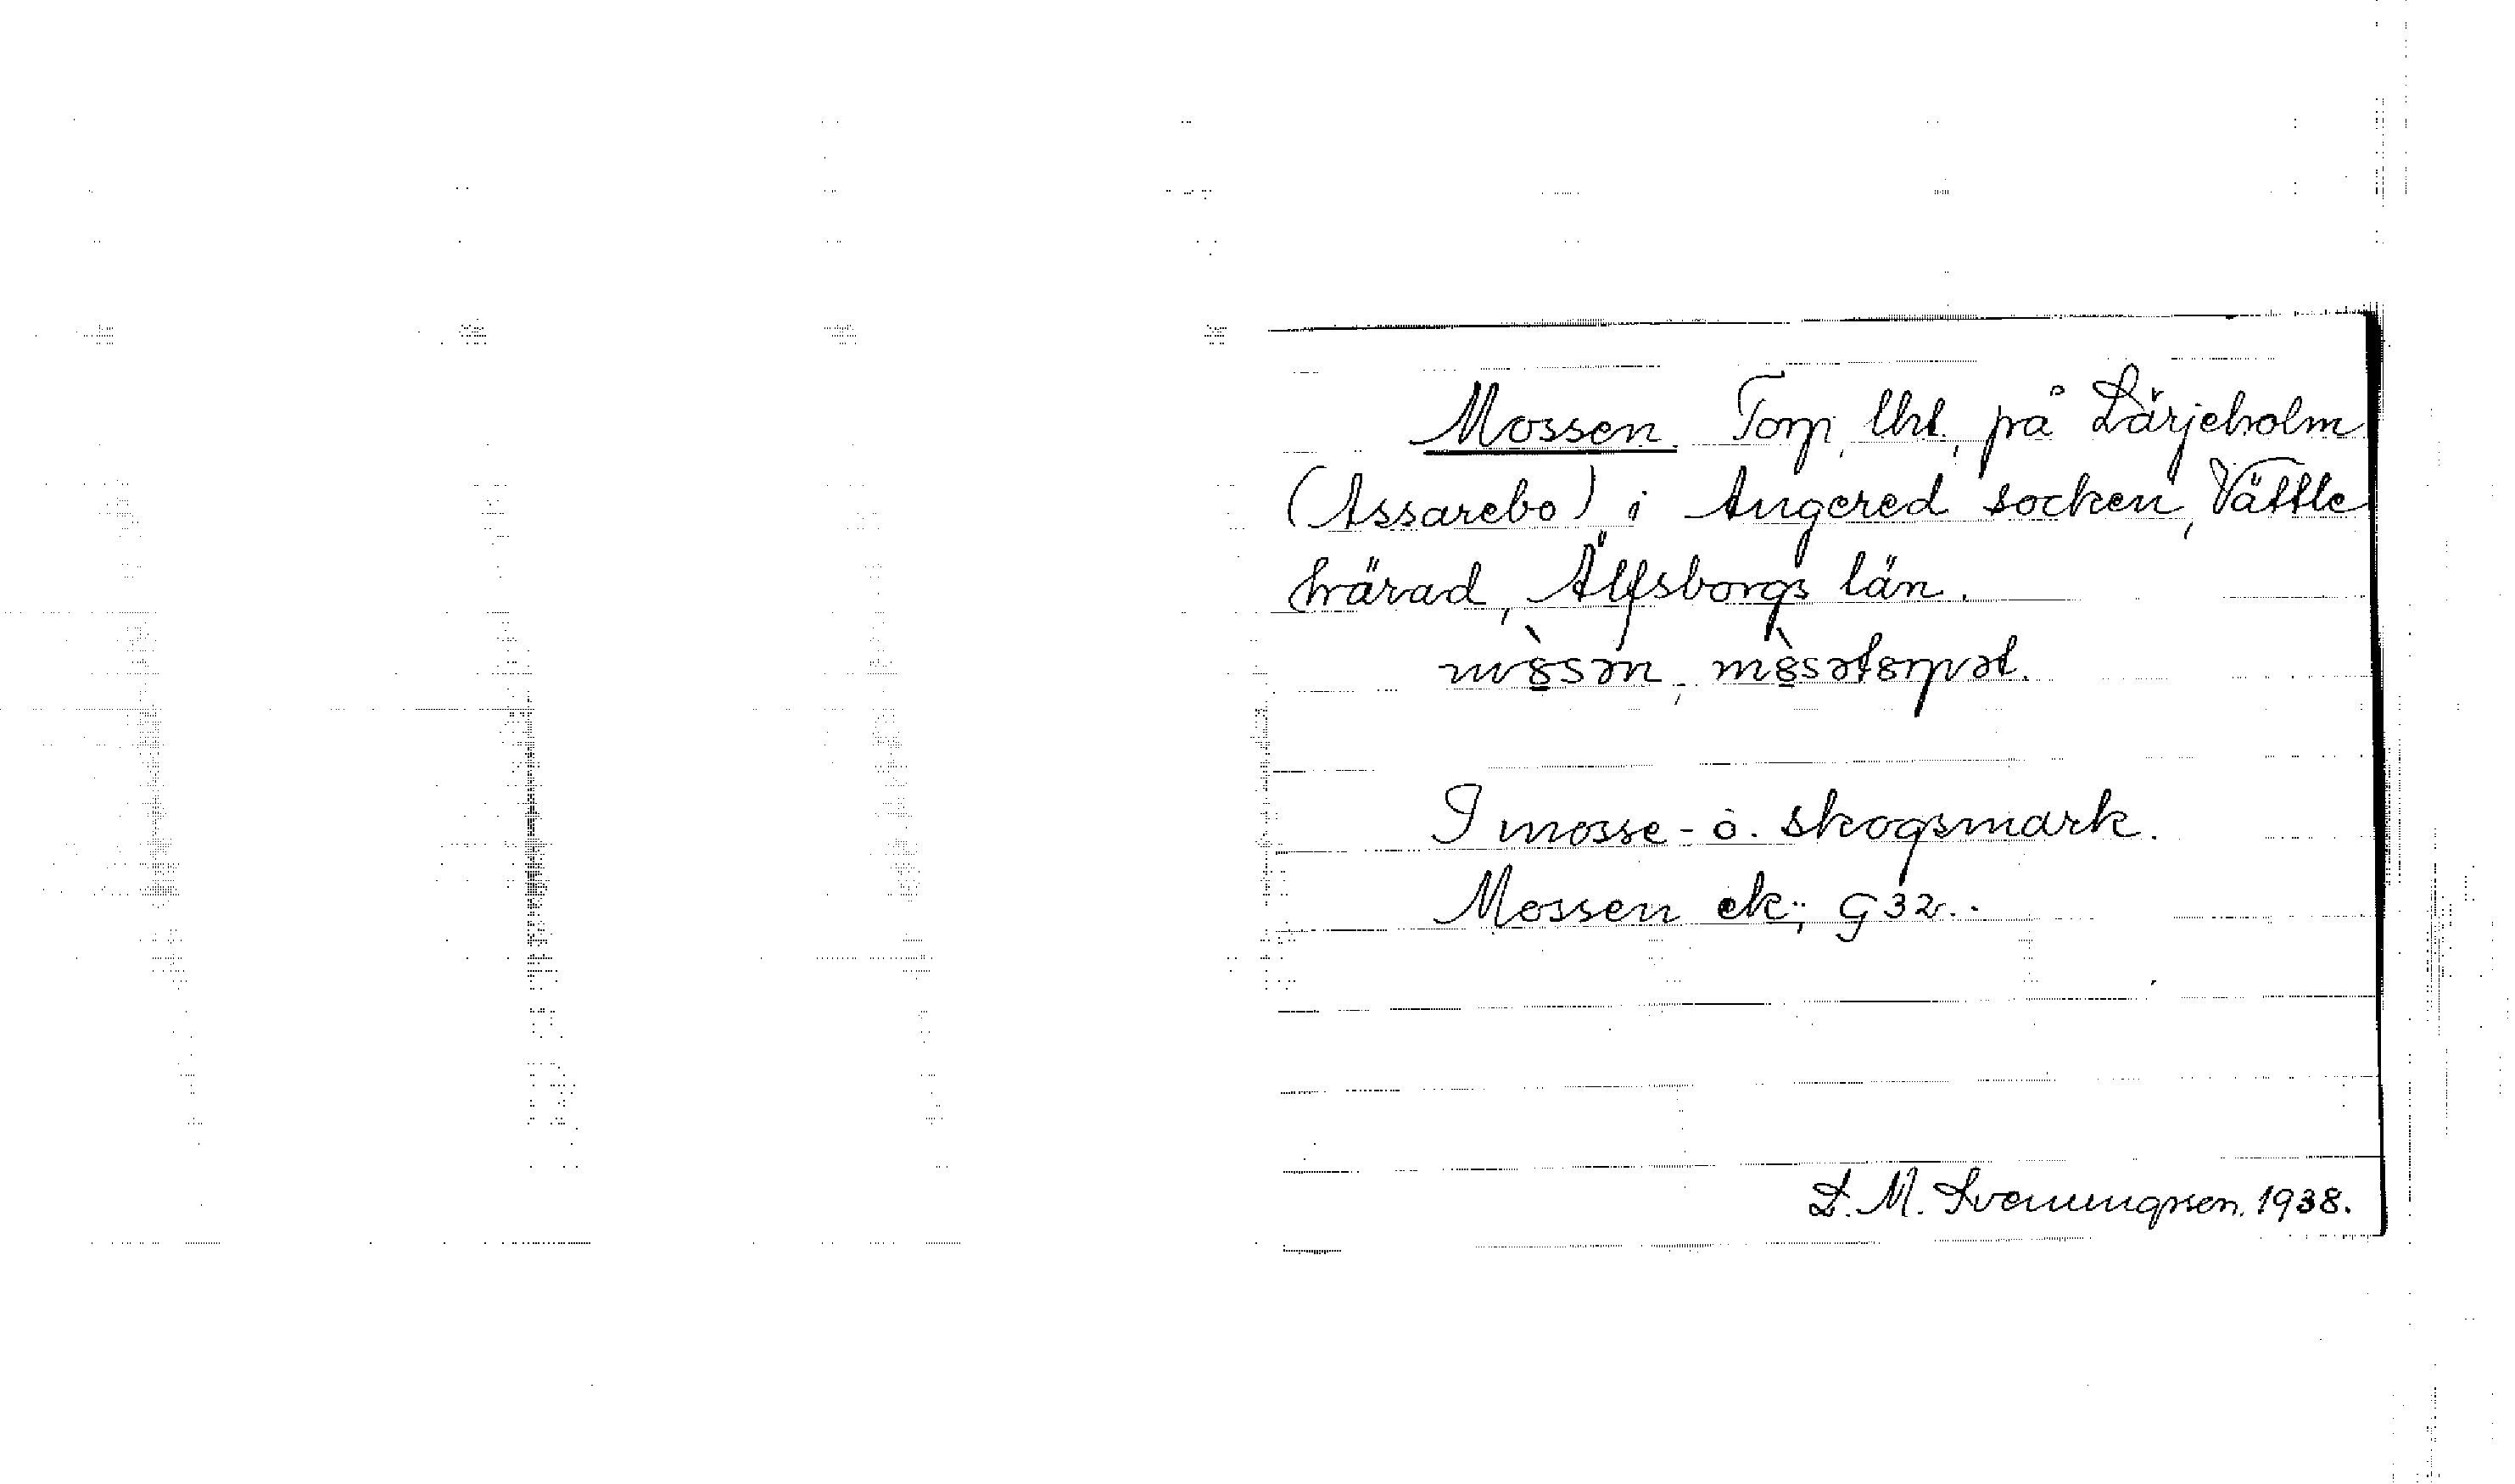 Mossen. Torp, lht, på Lärjeholm
(Assarebo) i Angered socken, Vättle
härad, Älfsborgs län.
I mosse- o. skogsmark.
Mossen ek; G32.
L. M. Svenungsson. 1938.